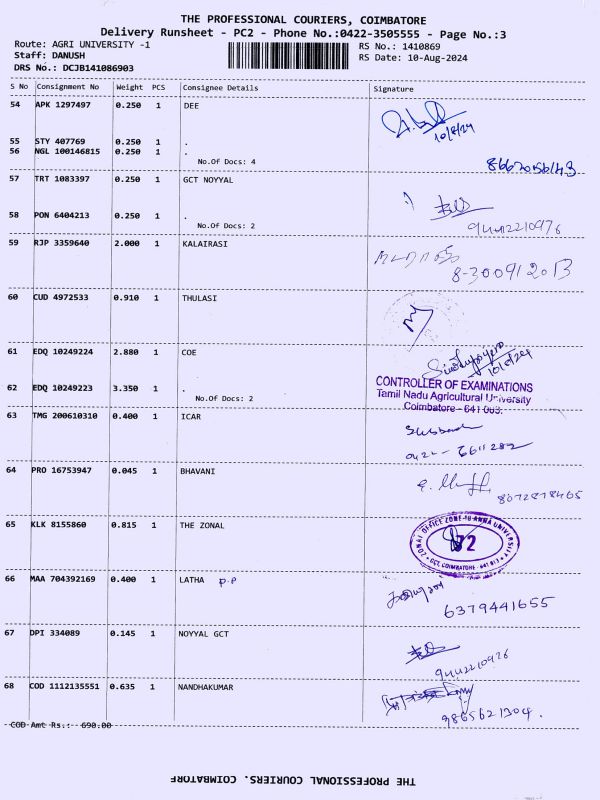 THE PROFESSIONAL COURIERS, COIMBATORE
Delivery Runsheet - PC2 - Phone No.:0422-3505555 - Page No.:3
Route: AGRI UNIVERSITY -1 RS No.: 1410869
Staff: DANUSH RS Date: 10-Aug-2024
DRS No.: DCJB141086903
S No Consignment No Weight PCS Consignee Details Signature
54 APK 1297497 0.250 1 DEE
10/8/24
55 STY 407769 0.250 1 .
56 NGL 100146815 0.250 1 .
No.Of Docs: 4
57 TRT 1083397 0.250 1 GCT NOYYAL
58 PON 6404213 0.250 1 .
No.Of Docs: 2
9442210976
59 RJP 3359640 2.000 1 KALAIRASI
8-300912013
60 CUD 4972533 0.910 1 THULASI
61 EDQ 10249224 2.880 1 COE
10/8/24
62 EDQ 10249223 3.350 1 .
No.Of Docs: 2
CONTROLLER OF EXAMINATIONS
Tamil Nadu Agricultural University
Coimbatore - 641 003.
63 TMG 200610310 0.400 1 ICAR
0422-6611282
64 PRO 16753947 0.045 1 BHAVANI
8072878465
65 KLK 8155860 0.815 1 THE ZONAL
ZONAL OFFICE ZONE-10 ANNA UNIVERSITY
72
GCT, COIMBATORE - 641 013
66 MAA 704392169 0.400 1 LATHA P.P
6379441655
67 DPI 334089 0.145 1 NOYYAL GCT
9442210976
68 COD 1112135551 0.635 1 NANDHAKUMAR
9865621304.
COD Amt Rs.: 690.00
THE PROFESSIONAL COURIERS. COIMBATORE